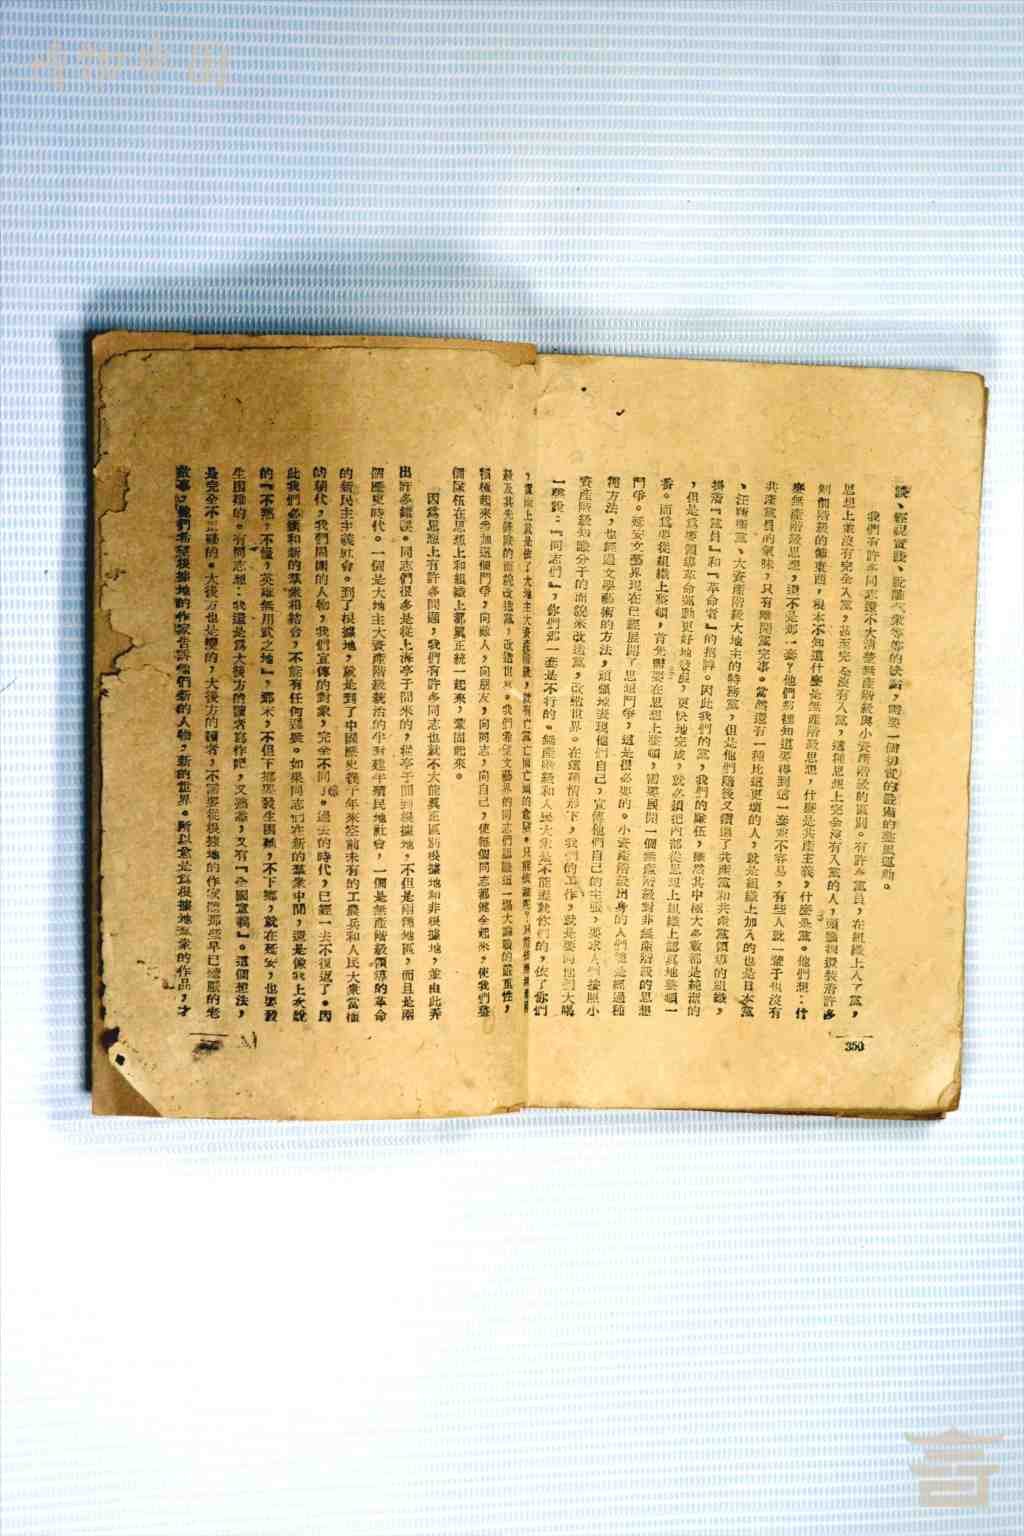 談、輕視實踐、脫離羣衆等等的缺點，需要一個切實的嚴肅的整風運動。
我們有許多同志還不大清楚無產階級與小資產階級的區別。有許多黨員，在組織上入了黨，
思想上並沒有完全入黨，甚至完全沒有入黨，這種思想上完全沒有入黨的人，頭腦裡還裝着許多
剝削階級的髒東西，根本不知道什麼是無產階級思想，什麼是共產主義，什麼是黨。他們想：什
麼無產階級思想，還不是那一套？他們那裡知道要得到這一套並不容易，有些人就一輩子也沒有
共產黨員的氣味，只有離開黨完事。當然還有一種比這更壞的人，就是組織上加入的也是日本黨
、汪精衛黨、大資產階級大地主的特務黨，但是他們隨後又鑽進了共產黨和共產黨領導的組織，
掛着『黨員』和『革命者』的招牌。因此我們的黨，我們的隊伍，雖然其中極大多數都是純潔的
，但是爲要領導革命運動更好地發展，更快地完成，就必須把內部從思想上組織上認真地整頓一
番。而爲要從組織上整頓，首先需要在思想上整頓，需要展開一個無產階級對非無產階級的思想
鬥爭。延安文藝界現在已經展開了思想鬥爭，這是很必要的。小資產階級出身的人們總是經過種
種方法，也經過文學藝術的方法，頑强地表現他們自己，宣傳他們自己的主張，要求人們按照小
資產階級知識分子的面貌來改造黨，改造世界。在這種情形下，我們的工作，就是要向他們大喝
一聲說：『同志們』，你們那一套是不行的。無產階級和人民大衆是不能遷就你們的，依了你們
，實際上就是依了大地主大資產階級，就有亡黨亡國亡頭的危險。只能依誰呢？只能依無產階
級及其先鋒隊的面貌改造黨，改造世界。我們希望文藝界的同志們認識這一場大論戰的嚴重性，
積極起來參加這個鬥爭，向敵人，向朋友，向同志，向自己，使每個同志都健全起來，使我們整
個隊伍在思想上和組織上都眞正統一起來，鞏固起來。
因爲思想上有許多問題，我們有許多同志也就不大能眞正區別根據地和非根據地，並由此弄
出許多錯誤。同志們很多是從上海亭子間來的，從亭子間到根據地，不但是兩種地區，而且是兩
個歷史時代。一個是大地主大資產階級統治的半封建半殖民地社會，一個是無產階級領導的革命
的新民主主義社會。到了根據地，就是到了中國歷史幾千年來空前未有的工農兵和人民大衆當權
的朝代，我們周圍的人物，我們宣傳的對象，完全不同了。過去的時代，已經一去不復返了。因
此我們必須和新的羣衆相結合，不能有任何遲疑。如果同志們在新的羣衆中間，還是像我上次說
的『不熟，不懂，英雄無用武之地』，那末，不但下鄉要發生困難，不下鄉，就在延安，也要發
生困難的。有同志想：我還是爲大後方的讀者寫作吧，又熟悉，又有『全國意義』。這個想法，
是完全不正確的。大後方也是變的，大後方的讀者，不需要從根據地的作家聽那些早已聽厭的老
故事，他們希望根據地的作家告訴他們新的人物，新的世界。所以愈是爲根據地羣衆的作品，才
350